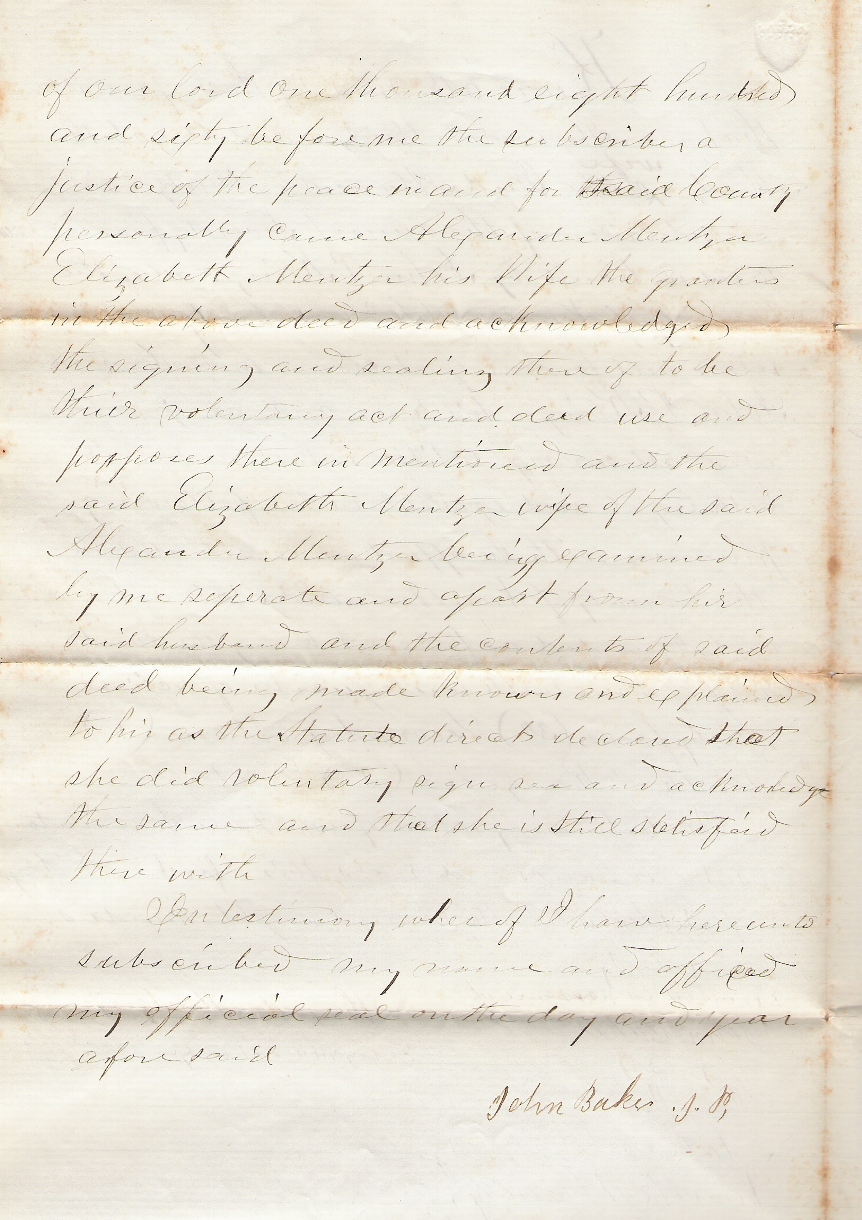 of our lord one thousand eight hundred
and sixty before me the subscriber a
justice of the peace in and for said County
personally came Alexander Mentzer
Elizabeth Mentzer his Wife the grantors
in the above deed and acknowledged
the signing and sealing there of to be
thier voluntary act and deed use and
popposes there in mentioned and the
said Elizabeth Mentzer wife of the said
Alexander Mentzer being examined
by me seperate and apart from hir
said husband and the contents of said
deed being made known and explained
to hir as the Statute direct declared that
she did voluntary sign sea and acknowledge
the same and that she is still sttisfaid
there with
In testimony wher of I have hereunto
subscribed my name and affixed
my official seal on the day and year
afore said
John Baker J. P,